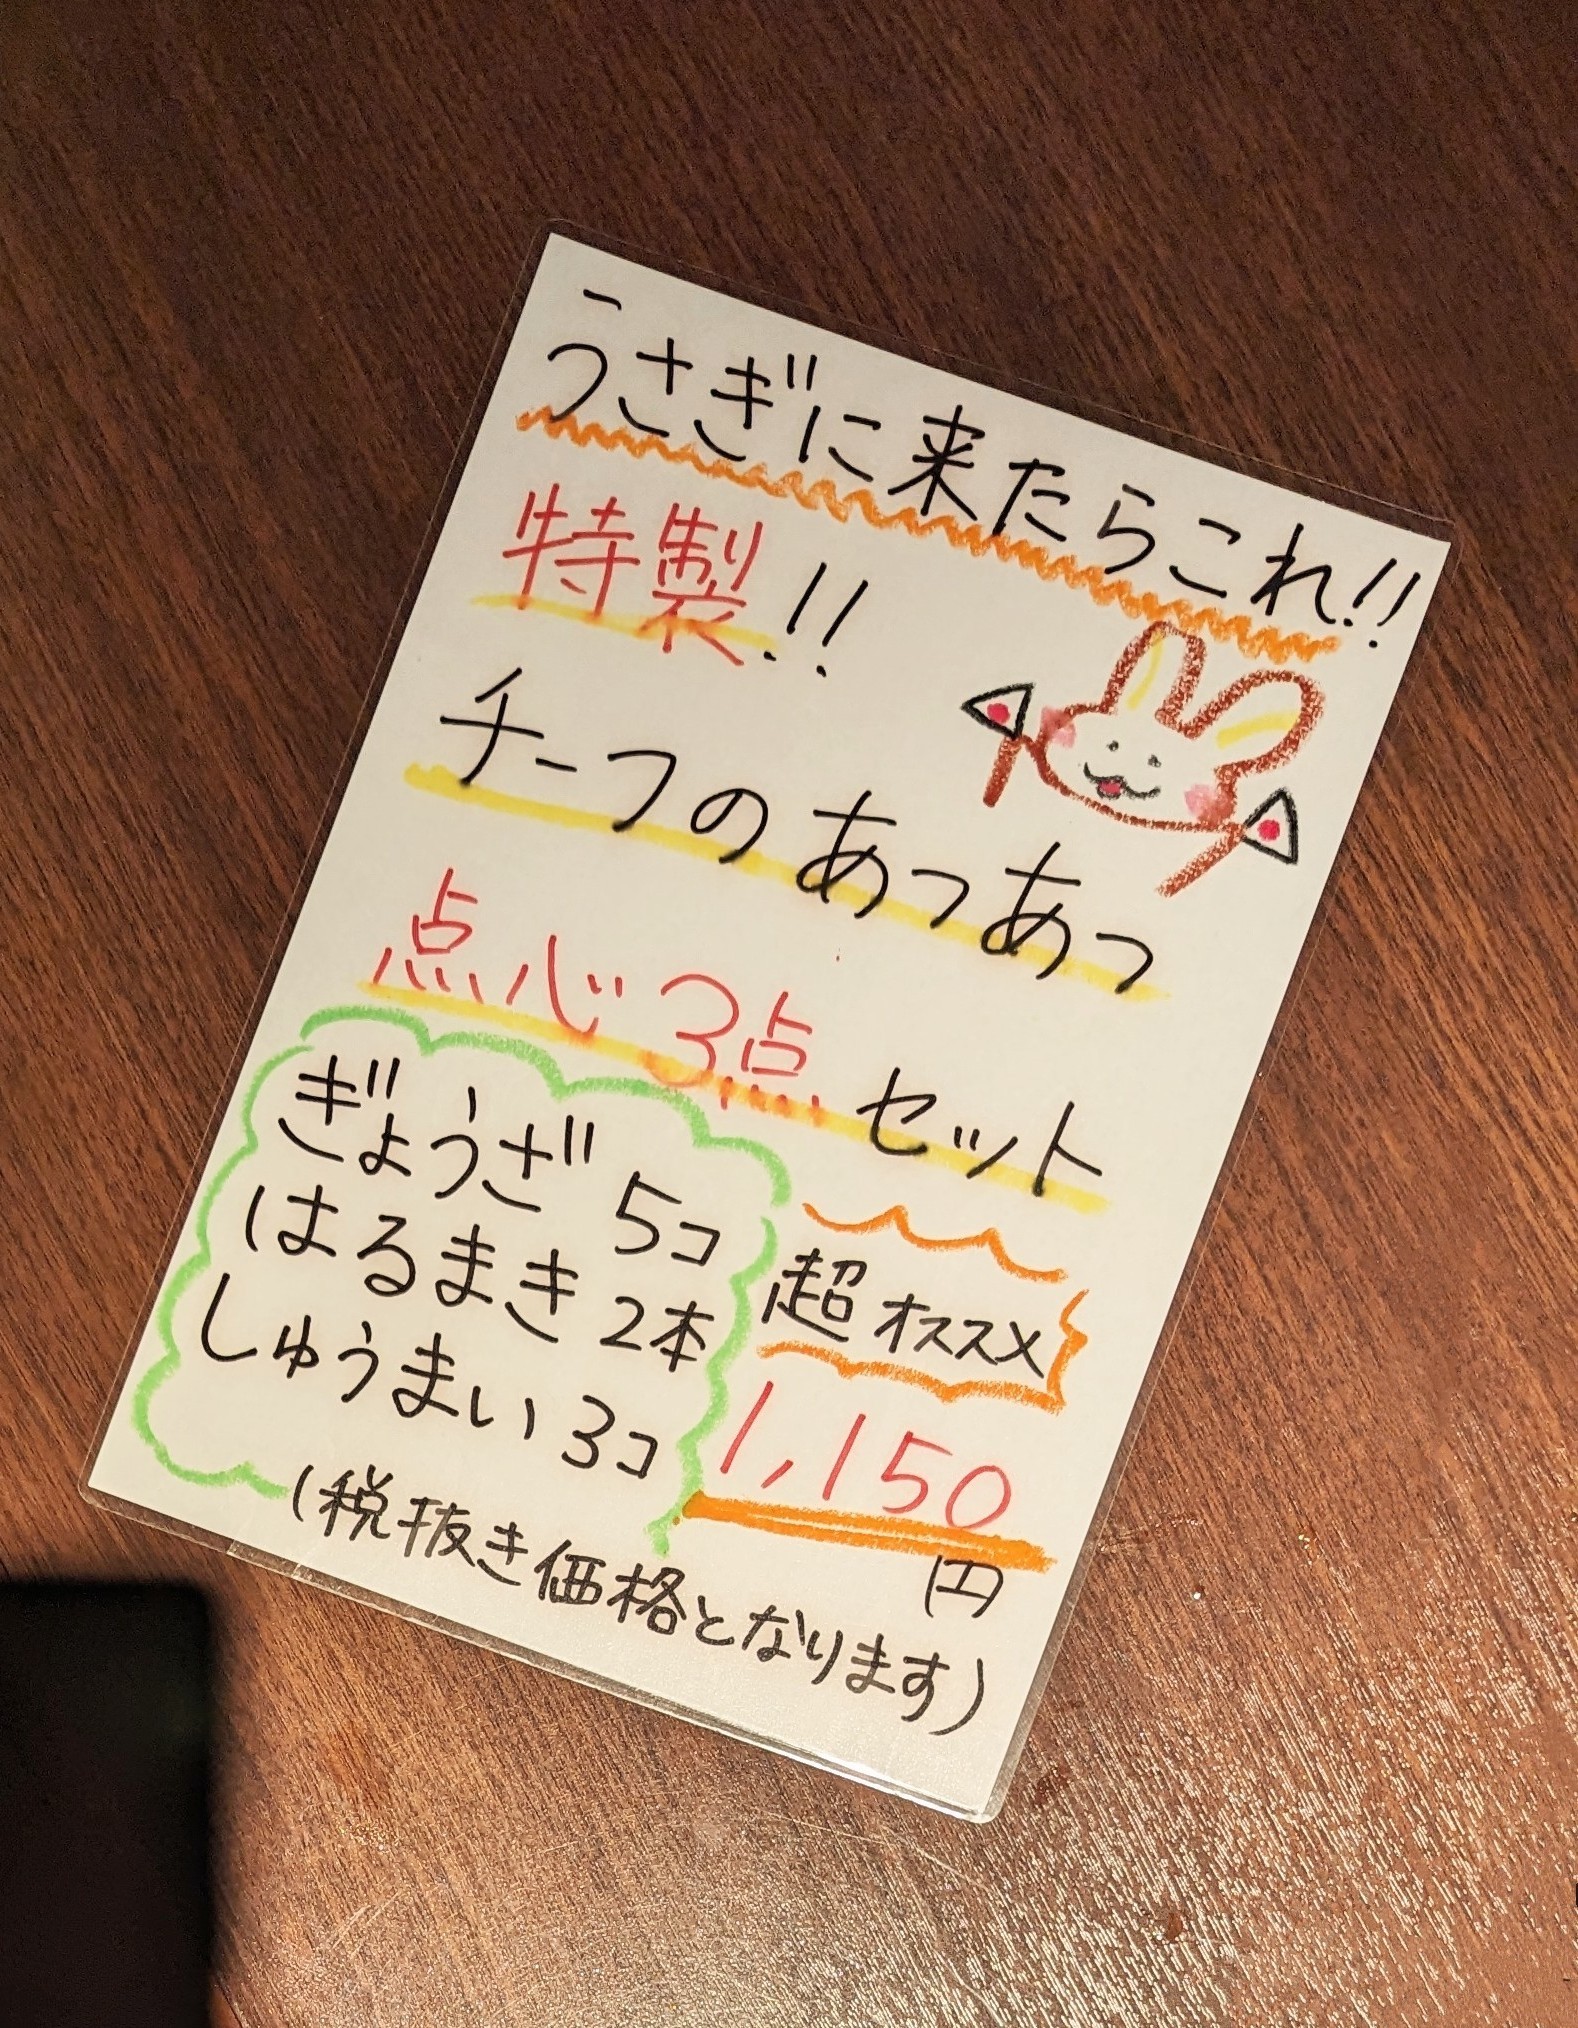 うさぎに来たらこれ!!
特製!!
チーフのあつあつ
点心3点セット
ぎょうざ 5コ
はるまき 2本
しゅうまい 3コ
超オススメ
1,150
円
(税抜き価格となります)